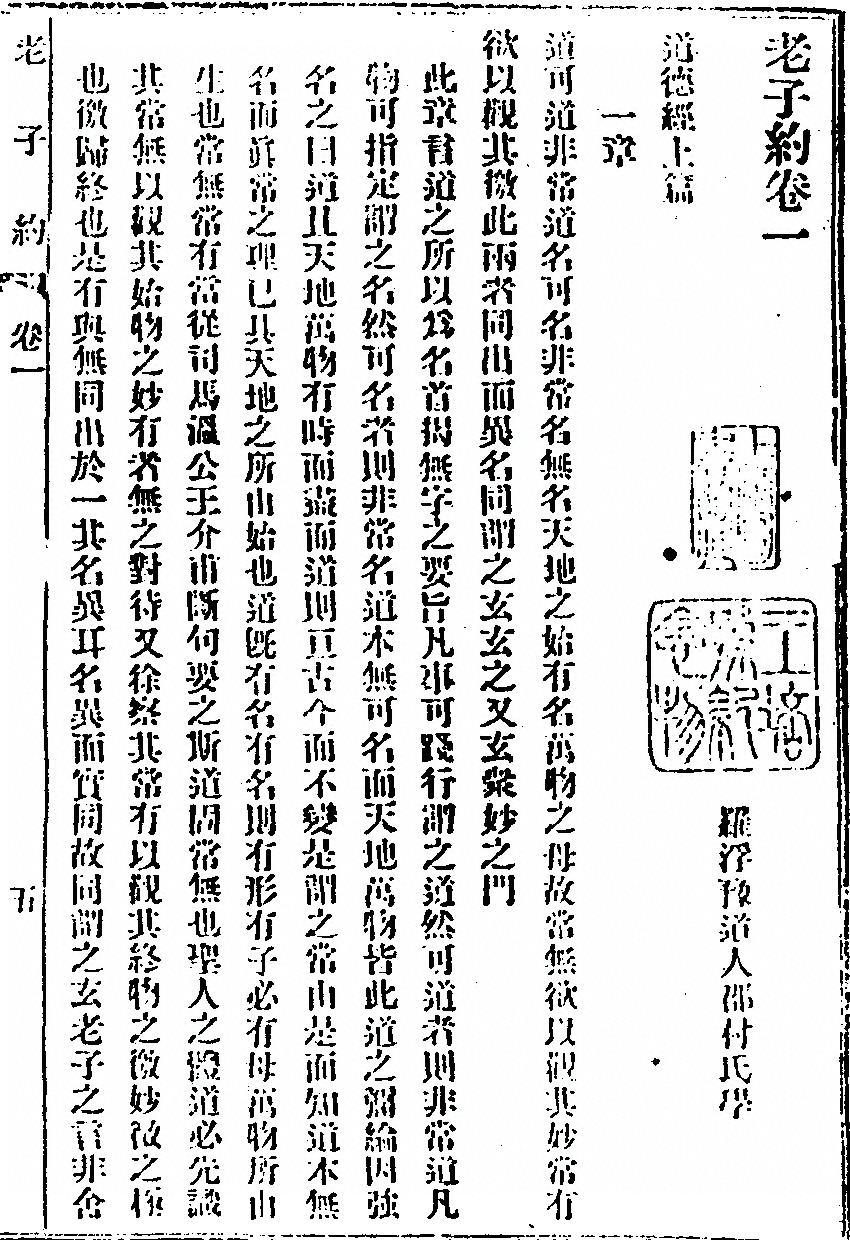 老子約卷一
羅浮豫道人鄧付氏學
道德經上篇
一章
道可道非常道名可名非常名無名天地之始有名萬物之母故常無欲以觀其妙常有
欲以觀其徼此兩者同出而異名同謂之玄玄之又玄衆妙之門
此章言道之所以爲名首揭無字之要旨凡事可踐行謂之道然可道者則非常道凡
物可指定謂之名然可名者則非常名道本無可名而天地萬物皆此道之彌綸因強
名之曰道且天地萬物有時而盡而道則亘古今而不變是謂之常由是而知道本無
名而眞常之理已具天地之所由始也道旣有名有名則有形有子必有母萬物所由
生也常無常有當從司馬溫公王介甫斷句要之斯道固常無也聖人之體道必先識
其常無以觀其始物之妙有者無之對待又徐察其常有以觀其終物之徼妙微之極
也徼歸終也是有與無同出於一其名異耳名異而實同故同謂之玄老子之言非舍
老子約
卷一
五